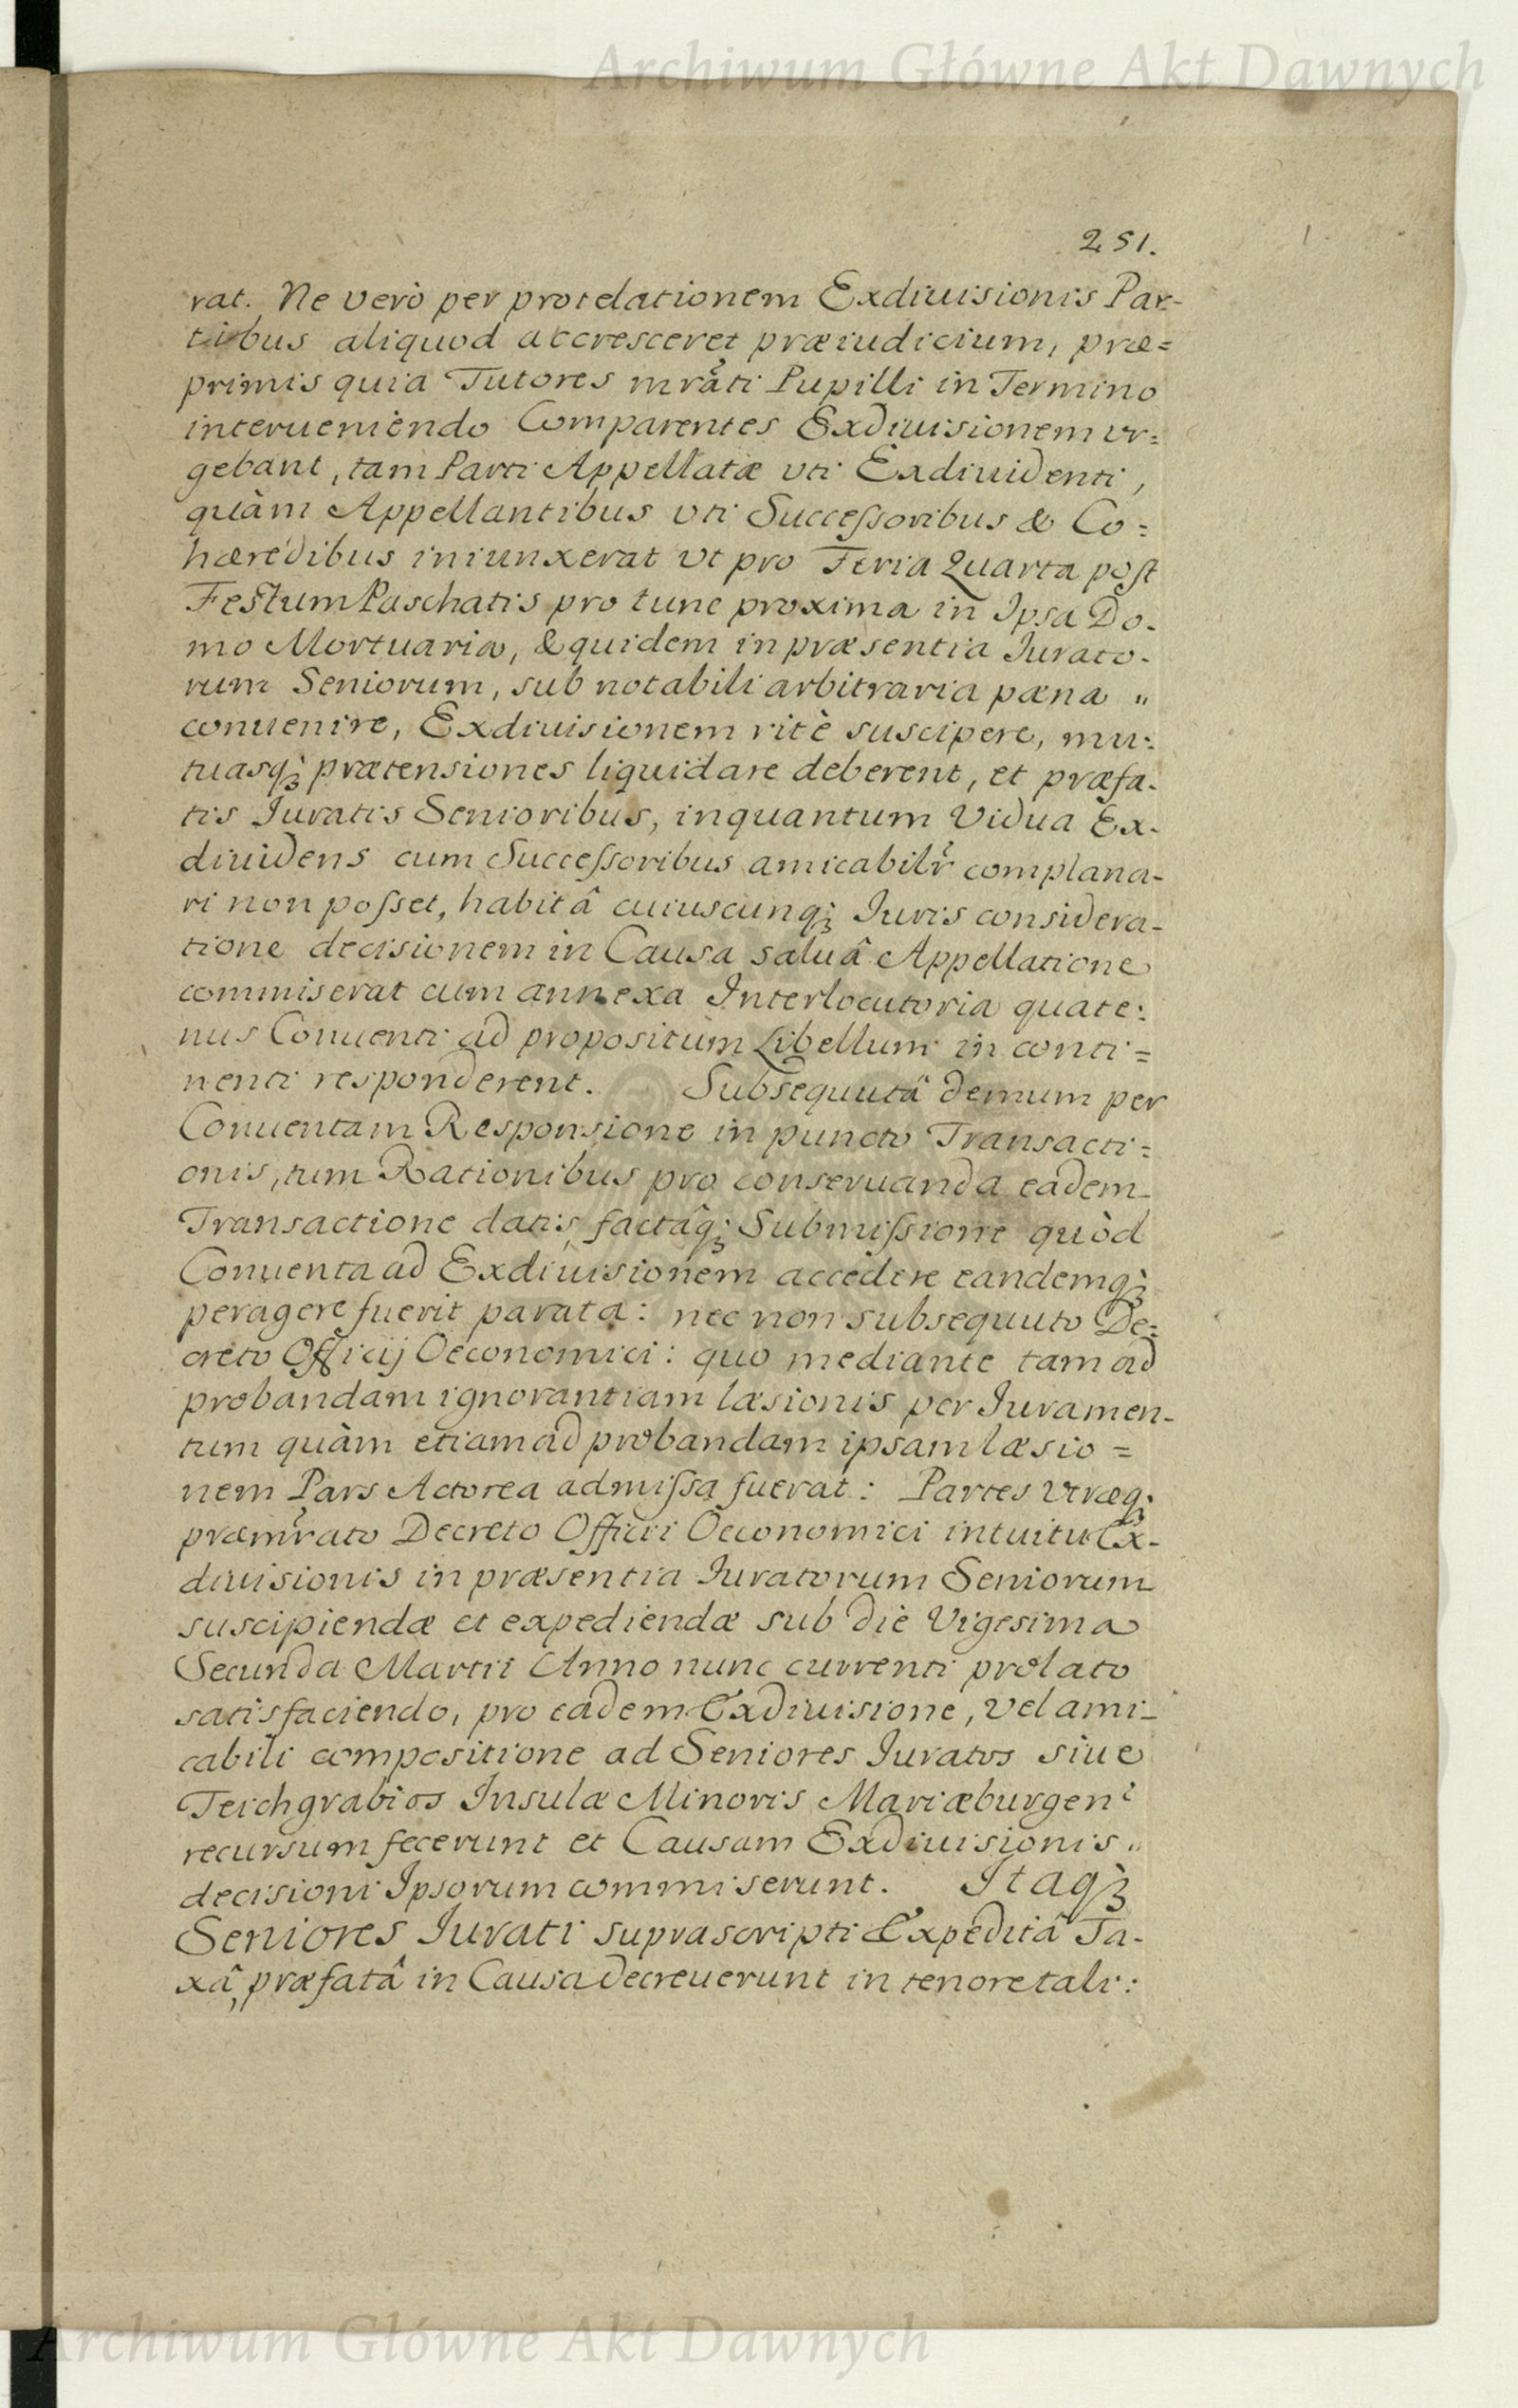 Archiwum Główne Akt Dawnych
251.
rat. Ne verò per protelationem Exdiuisionis Par-
tibus aliquod accresceret præiudicium, præ=
primis quia Tutores mrãti Pupilli in Termino
interueniendo Comparentes Exdiuisionem vr=
gebant, tam Parti Appellatæ vti Exdiuidenti,
quàm Appellantibus vti Successoribus & Co=
hæredibus iniunxerat vt pro Feria Quarta post
Festum Paschatis pro tunc proxima in Ipsa Do-
mo Mortuaria, & quidem in præsentia Iurato-
rum Seniorum, sub notabili arbitraria pæna "
conuenire, Exdiuisionem ritè suscipere, mu=
tuasq; prætensiones liquidare deberent, et præfa-
tis Iuratis Senioribus, inquantum Vidua Ex-
diuidens cum Successoribus amicabilr̃ complana-
ri non posset, habitâ cuiuscunq; Iuris considera-
tione decisionem in Causa saluâ Appellatione
commiserat cum annexa Interlocutoria quate=
nus Conuenti ad propositum Libellum in conti=
nenti responderent. Subsequutâ demum per
Conuentam Responsione in puncto Transacti=
onis, tum Rationibus pro conseruanda eadem
Transactione datis, factâq; Submissione quòd
Conuenta ad Exdiuisionem accedere eandemq;
peragere fuerit parata: nec non subsequuto De=
creto Officij Oeconomici: quo mediante tam ad
probandam ignorantiam læsionis per Iuramen-
tum quàm etiam ad probandam ipsam læsio=
nem Pars Actorea admissa fuerat: Partes vtræq;
præmr̃ato Decreto Officii Oeconomici intuitu Ex-
diuisionis in præsentia Iuratorum Seniorum
suscipiendæ et expediendæ sub die Vigesima
Secunda Martii Anno nunc currenti prolato
satisfaciendo, pro eadem Exdiuisione, vel ami-
cabili compositione ad Seniores Iuratos siue
Teichgrabios Insulæ Minoris Mariæburgen:
recursum fecerunt et Causam Exdiuisionis "
decisioni Ipsorum commiserunt. Itaq;
Seniores Iurati suprascripti Expeditâ Ta-
xâ, præfatâ in Causa decreuerunt in tenore tali:
Archiwum Główne Akt Dawnych